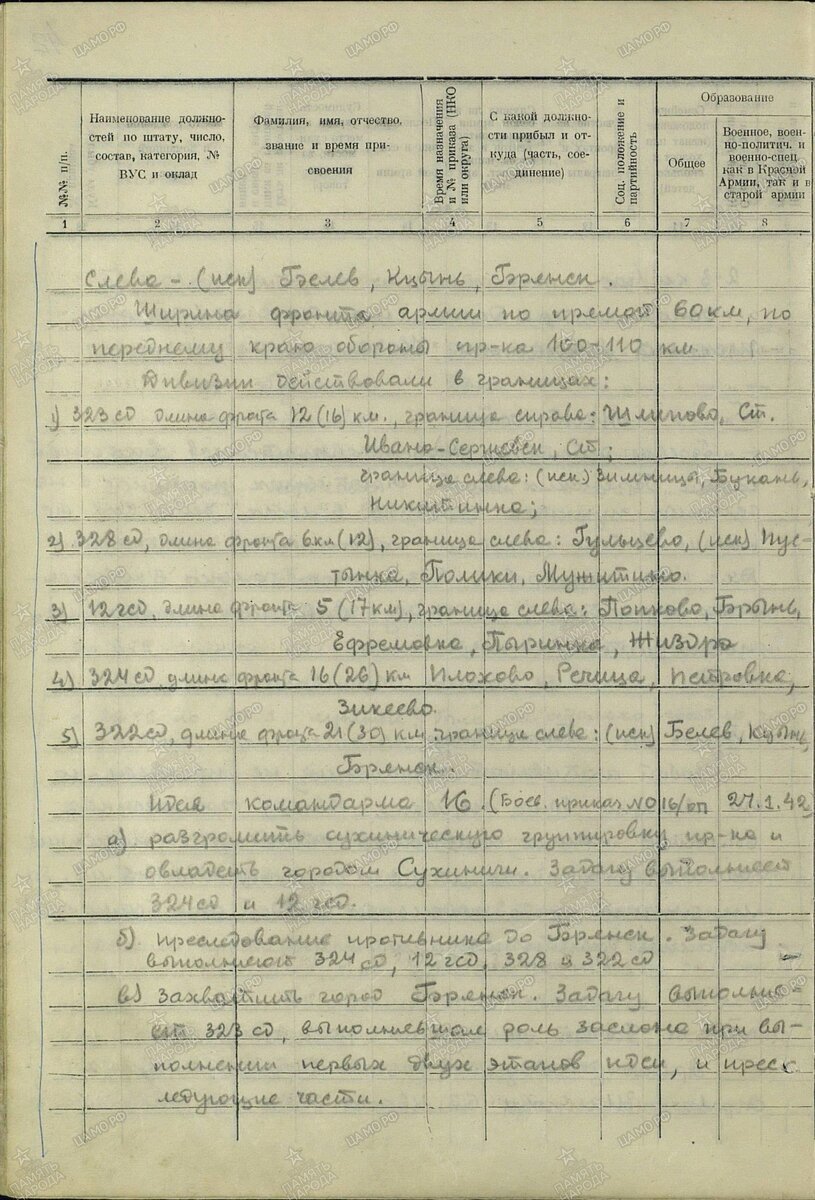 №№ п/п.
Наименование должно-
стей по штату, число,
состав, категория, №
ВУС и оклад
Фамилия, имя, отчество,
звание и время при-
своения
Время назначения
и № приказа (НКО
или округа)
С какой должно-
сти прибыл и от-
куда (часть, сое-
динение)
Соц. положение и
партийность
Образование
Общее
Военное, воен-
но-политич. и
военно-спец.
как в Красной
Армии, так и в
старой армии
1 2 3 4 5 6 7 8
Слева – (иск) Белев, Кцынь, Брянск.
Ширина фронта армии по прямой 60 км, по
переднему краю обороны пр-ка 100-110 км
Дивизии действовали в границах:
1) 323 сд длина фронта 12 (16) км., граница справа: Шлипово, Ст.
Ивано-Сергиевск, Ст;
граница слева: (иск) Зимницы, Букань,
Никитинка;
2) 328 сд, длина фронта 6 км (12), граница слева: Гульцево, (иск) Пус-
тынка, Полики, Мужитино.
3) 12 гсд, длина фронта 5 (17 км), граница слева: Попково, Брынь,
Ефремовка, Пыринка, Жиздра
4) 324 сд, длина фронта 16 (26) км Плохово, Речица, Петровка,
Зикеево.
5) 322 сд, длина фронта 21 (30) км граница слева: (иск) Белев, Кцынь,
Брянск.
Идея командарма 16. (Боев. приказ № 016/оп 27.1.42)
а) разгромить сухиническую группировку пр-ка и
овладеть городом Сухиничи. Задачу выполняет
324 сд и 12 гсд.
б) преследование противника до Брянск. Задачу
выполняют 324 сд, 12 гсд, 328 и 322 сд
в) Захватить город Брянск. Задачу выполня-
ет 323 сд, выполнявшая роль заслона при вы-
полнении первых двух этапов идеи, и прес-
ледующие части.
ПАМЯТЬ НАРОДА
ЦАМО.РФ